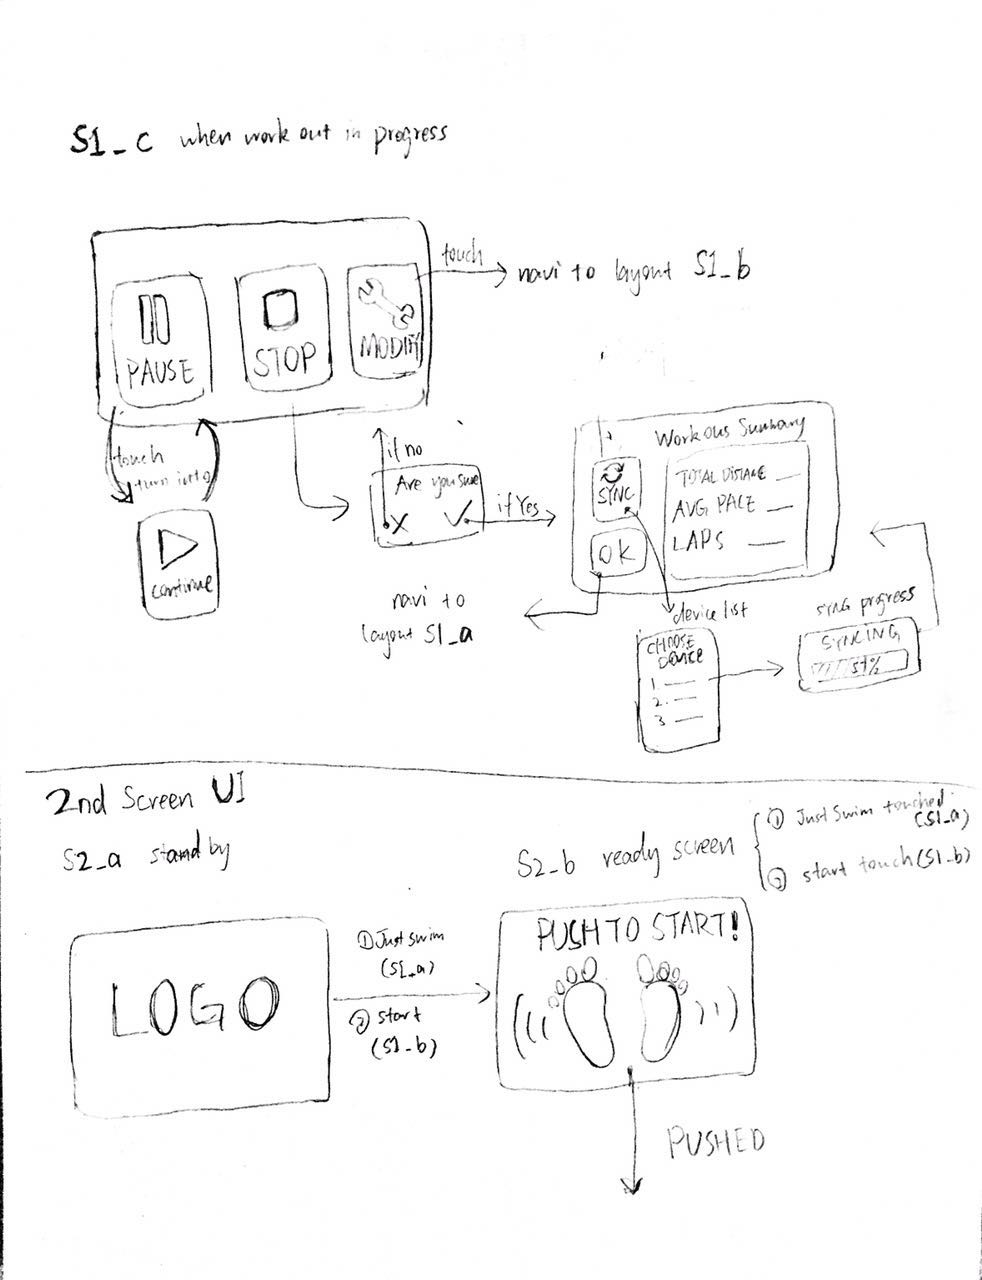 S1_c when work out in progress
touch
navi to layout S1_b
PAUSE
STOP
MODIFY
touch
turn into
continue
if no
Are you sure
X
if Yes
Workous Summary
SYNC
OK
TOTAL DISTANCE
AVG PACE
LAPS
navi to
layout S1_a
device list
CHOOSE
DEVICE
1.
2.
3
sync progress
SYNCING
51%
2nd Screen UI
S2_a stand by
S2_b ready screen
① Just Swim touched
(S1_a)
② start touch (S1_b)
LOGO
① Just swim
(S1_a)
② start
(S1_b)
PUSH TO START!
PUSHED